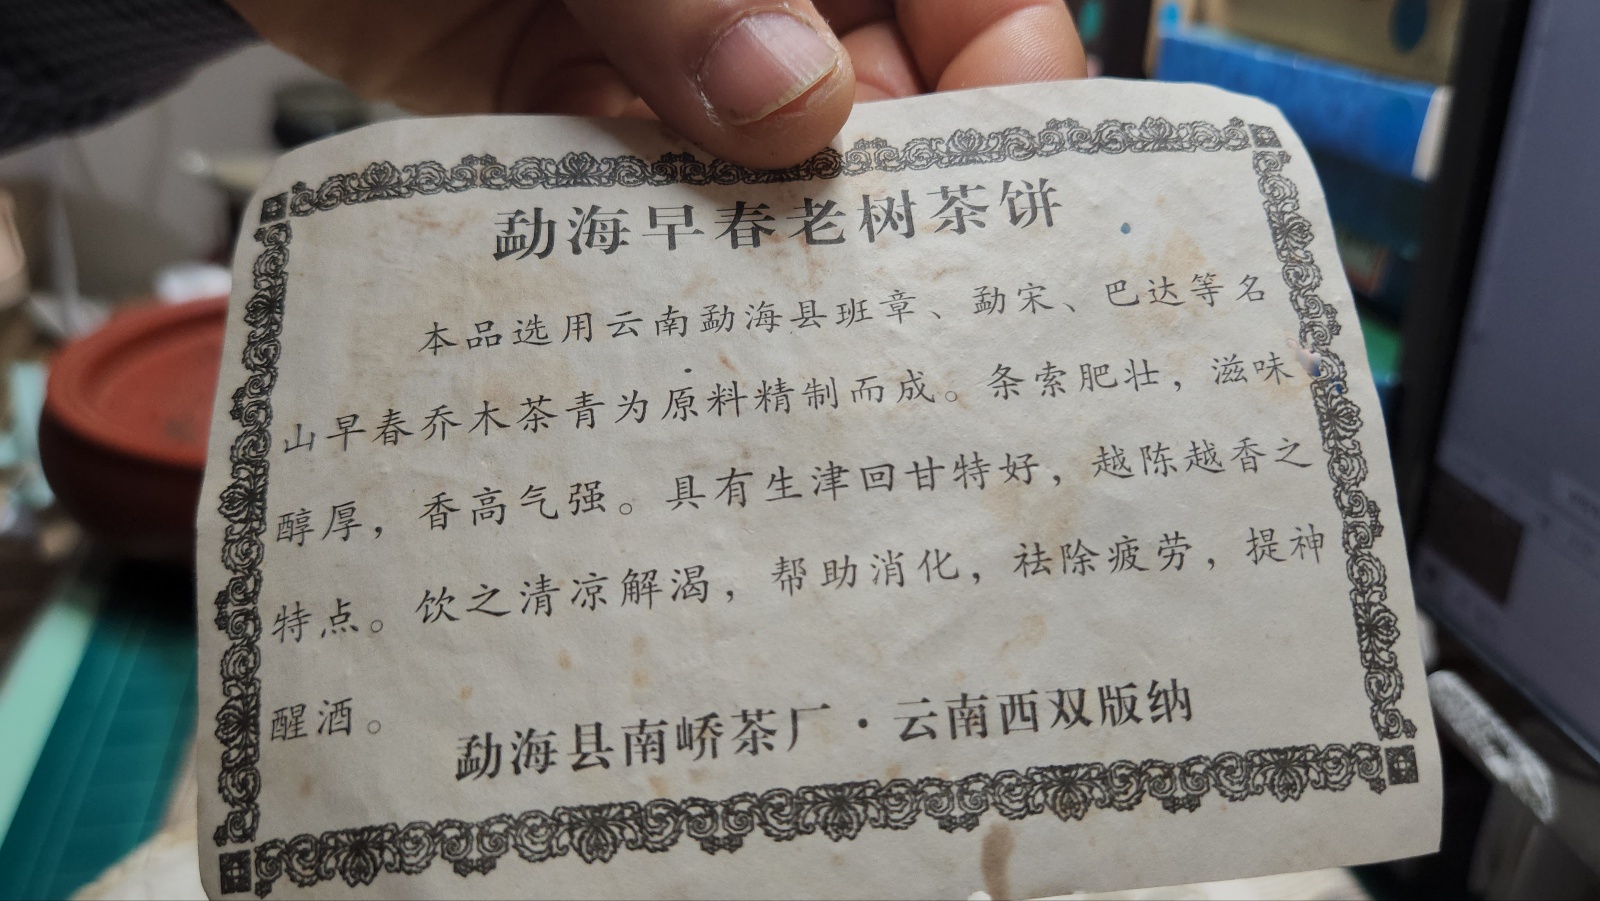 勐海早春老树茶饼
本品选用云南勐海县班章、勐宋、巴达等名
山早春乔木茶青为原料精制而成。条索肥壮，滋味
醇厚，香高气强。具有生津回甘特好，越陈越香之
特点。饮之清凉解渴，帮助消化，祛除疲劳，提神
醒酒。
勐海县南峤茶厂·云南西双版纳